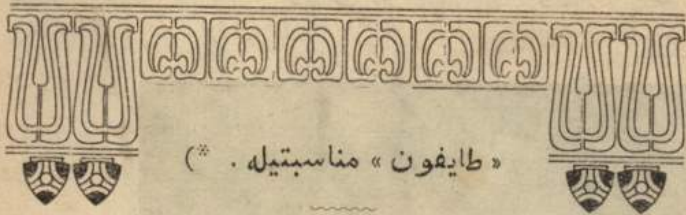 « طايفون » مناسبتيله . *)